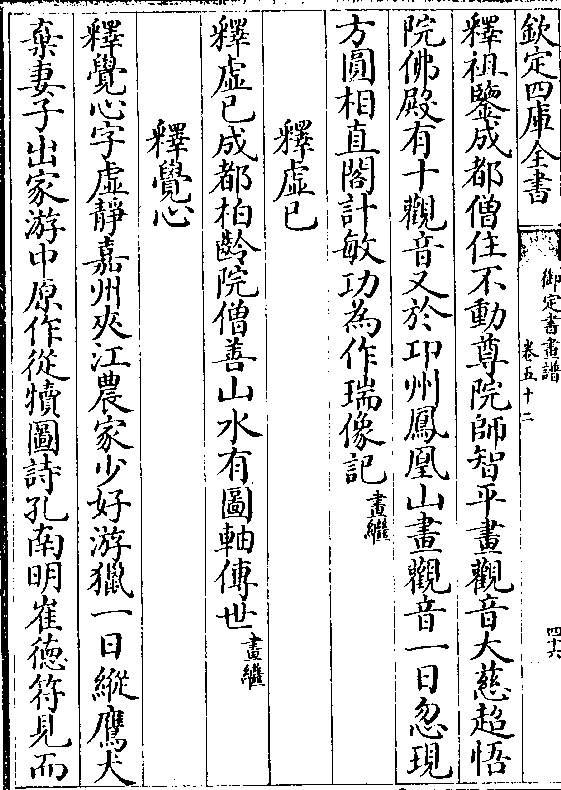 欽定四庫全書
御定書畫譜
卷五十二
四十六
釋祖鑒成都僧住不動尊院師智平畫觀音大慈超悟
院佛殿有十觀音又於邛州鳳凰山畫觀音一日忽現
方圓相直閣計敏功為作瑞像記畫繼
釋虛已
釋虛已成都柏齡院僧善山水有圖軸傳世畫繼
釋覺心
釋覺心字虛靜嘉州夾江農家少好游獵一日縱鷹犬
棄妻子出家游中原作從犢圖詩孔南明崔徳符見而